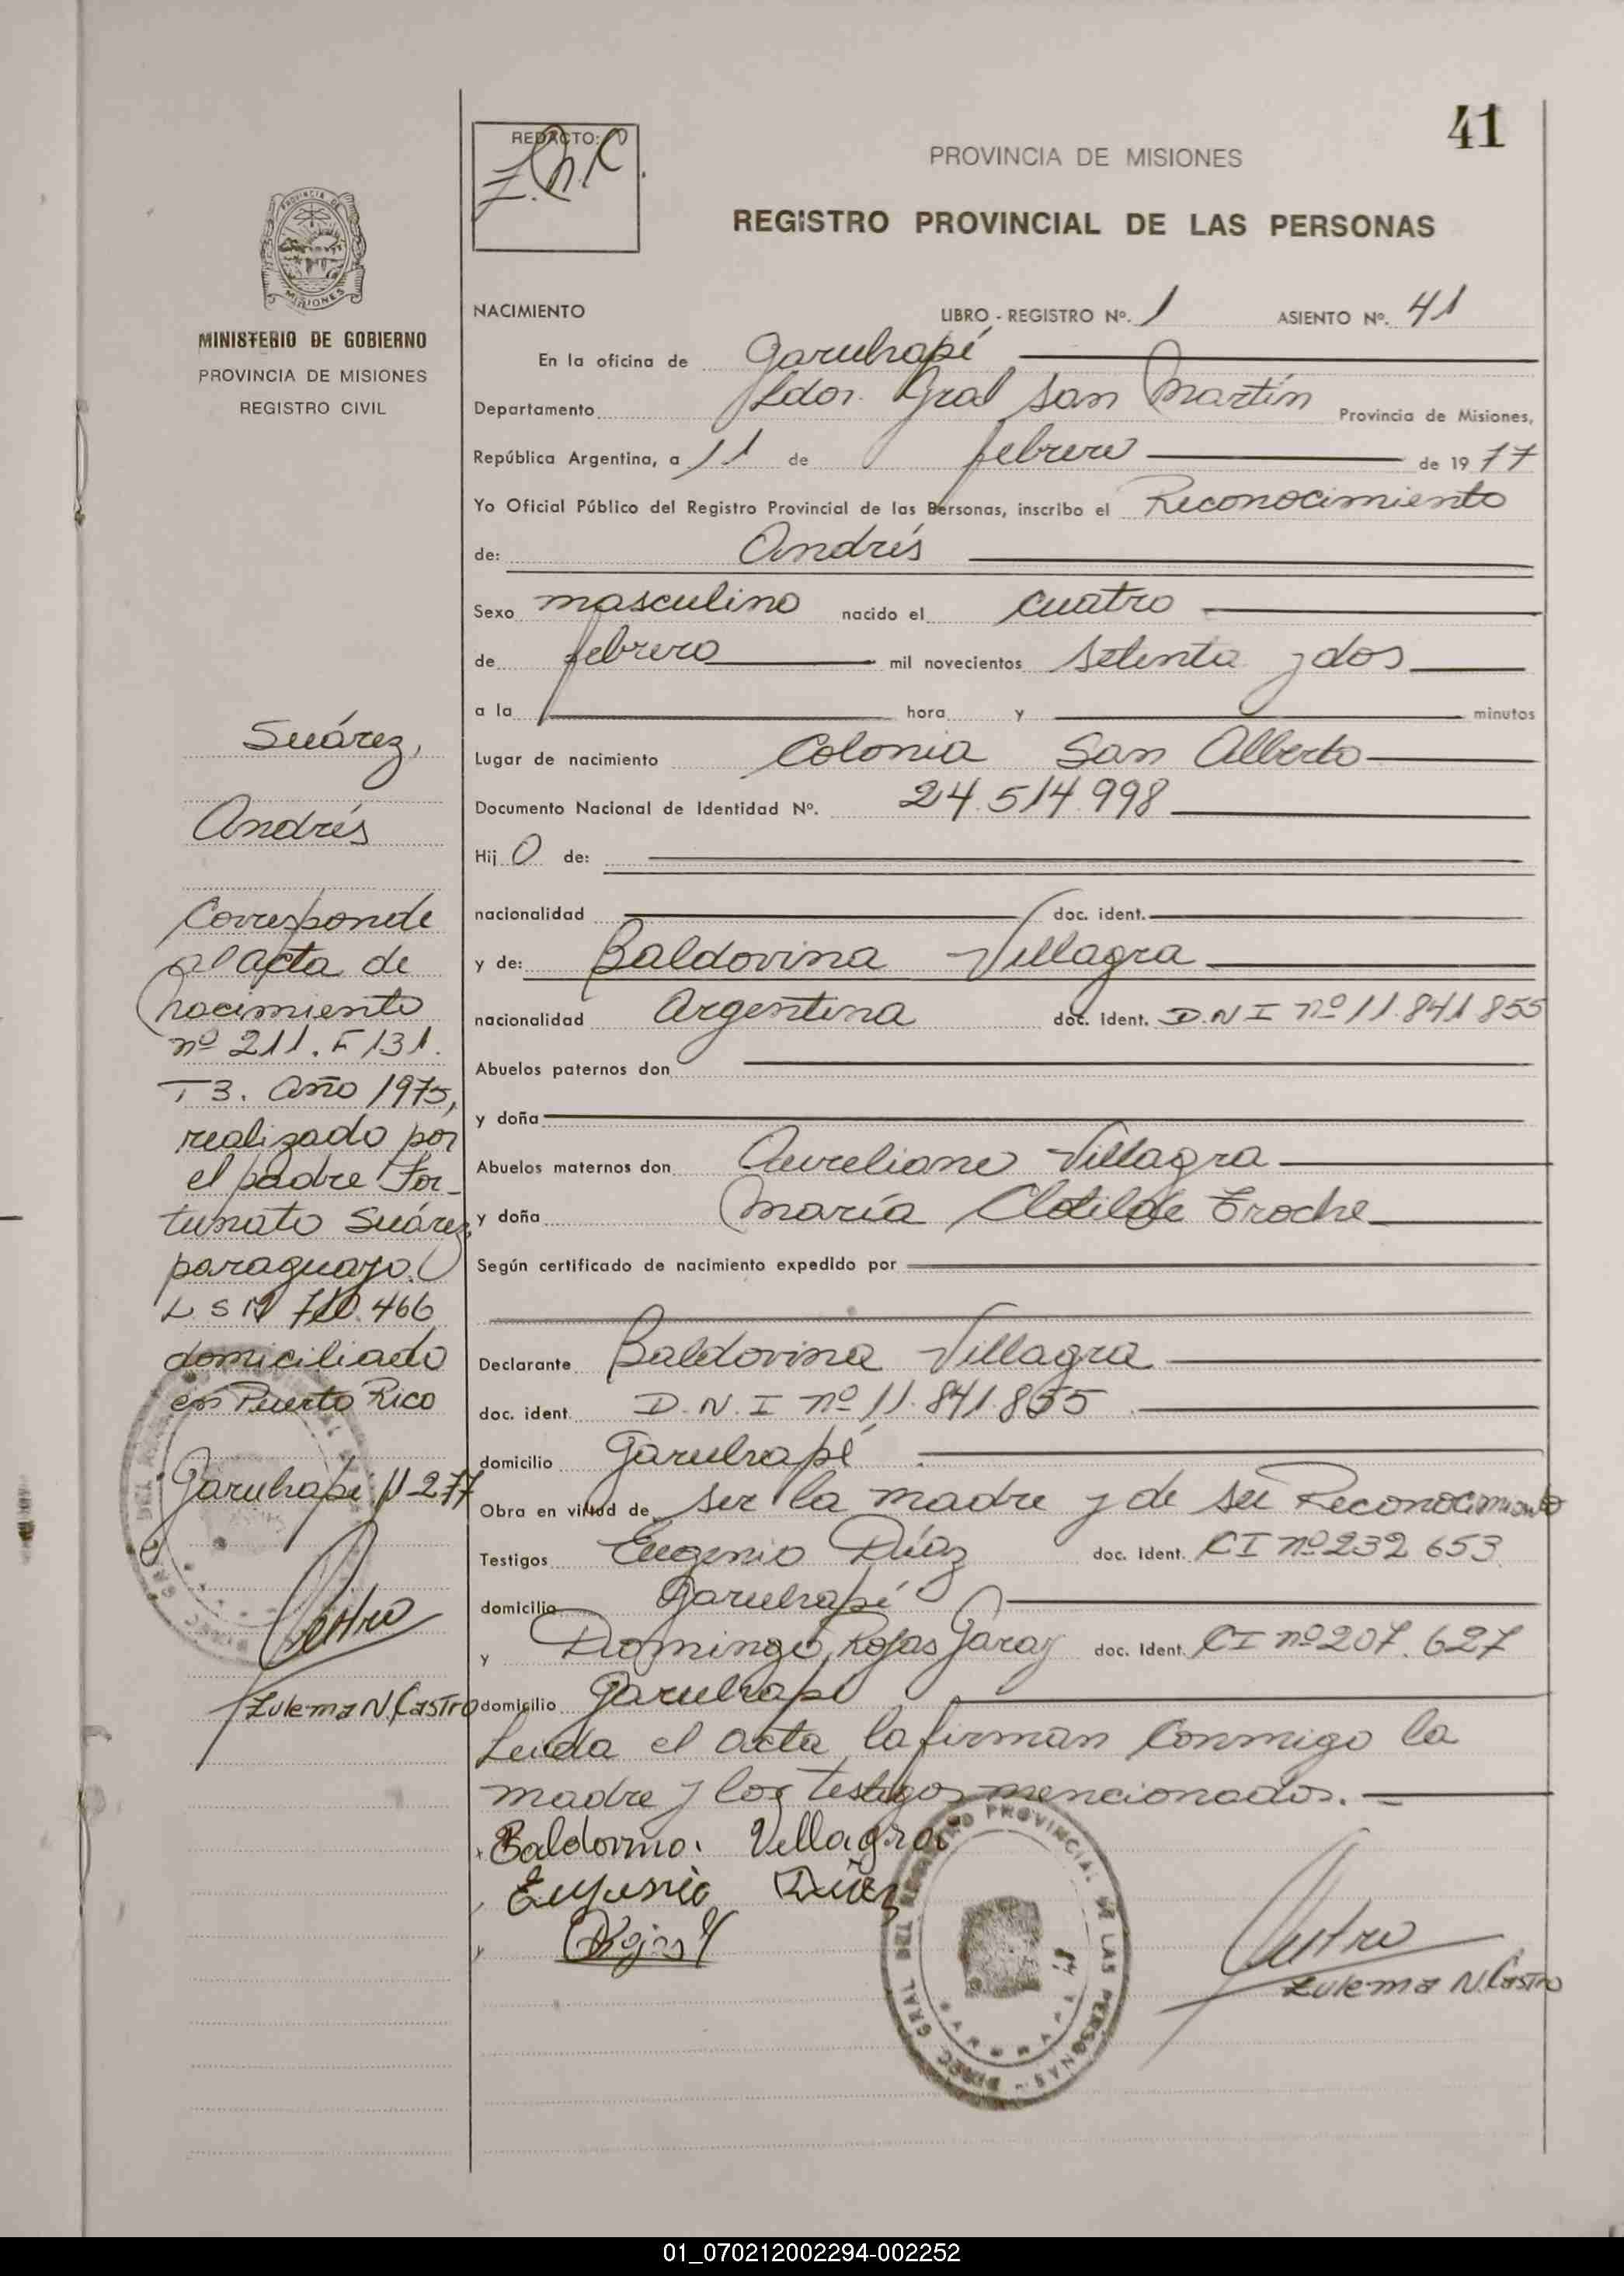 41
REDACTO:
Z.N.C.
PROVINCIA DE MISIONES
REGISTRO PROVINCIAL DE LAS PERSONAS
MINISTERIO DE GOBIERNO
PROVINCIA DE MISIONES
REGISTRO CIVIL
NACIMIENTO LIBRO - REGISTRO Nº. 1 ASIENTO Nº. 41
En la oficina de Garuhapé
Departamento Ldor. Gral San Martín Provincia de Misiones,
República Argentina, a 11 de febrero de 1977
Yo Oficial Público del Registro Provincial de las Personas, inscribo el Reconocimiento
de: Andrés
Sexo masculino nacido el cuatro
de febrero mil novecientos setenta y dos
a la hora y minutos
Lugar de nacimiento Colonia San Alberto
Documento Nacional de Identidad Nº. 24.514.998
Hij O de:
nacionalidad doc. ident.
y de: Baldovina Villagra
nacionalidad Argentina doc. ident. D.N.I nº 11.841.855
Abuelos paternos don
y doña
Abuelos maternos don Aureliano Villagra
y doña María Clotilde Troche
Según certificado de nacimiento expedido por
Declarante Baldovina Villagra
doc. ident. D.N.I nº 11.841.855
domicilio Garuhapé
Obra en virtud de ser la madre y de su Reconocimiento
Testigos Eugenio Díaz doc. Ident. CI nº 232 653
domicilio Garuhapé
y Domingo Rojas Garay doc. Ident. CI nº 207.627
domicilio Garuhapé
Leída el acta la firman conmigo la
madre y los testigos mencionados.
Baldovina Villagra
Eugenio Díaz
Rojas
Zulema N. Castro
REGISTRO PROVINCIAL DE LAS PERSONAS - DIREC. GRAL DEL
Suárez,
Andrés
Corresponde
al acta de
nacimiento
nº 211. F 131.
T 3. Año 1975,
realizado por
el padre For-
tunato Suárez,
paraguayo.
domiciliado
en Puerto Rico
Garuhapé 11-2-77
Castro
Zulema N. Castro
01_070212002294-002252